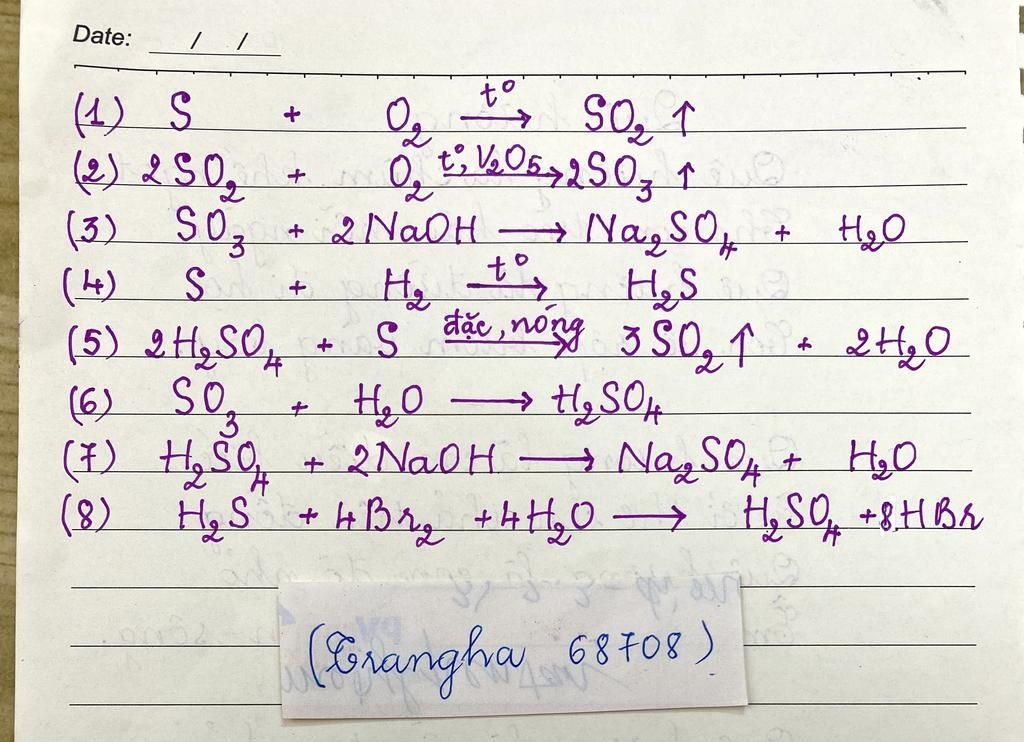 Date: / /
(1) S + O₂ —t°→ SO₂ ↑
(2) 2SO₂ + O₂ —t°, V₂O₅→ 2SO₃ ↑
(3) SO₃ + 2NaOH ⟶ Na₂SO₄ + H₂O
(4) S + H₂ —t°→ H₂S
(5) 2H₂SO₄ + S —đặc, nóng→ 3SO₂ ↑ + 2H₂O
(6) SO₃ + H₂O ⟶ H₂SO₄
(7) H₂SO₄ + 2NaOH ⟶ Na₂SO₄ + H₂O
(8) H₂S + 4Br₂ + 4H₂O ⟶ H₂SO₄ + 8HBr
(Trangha 68708)